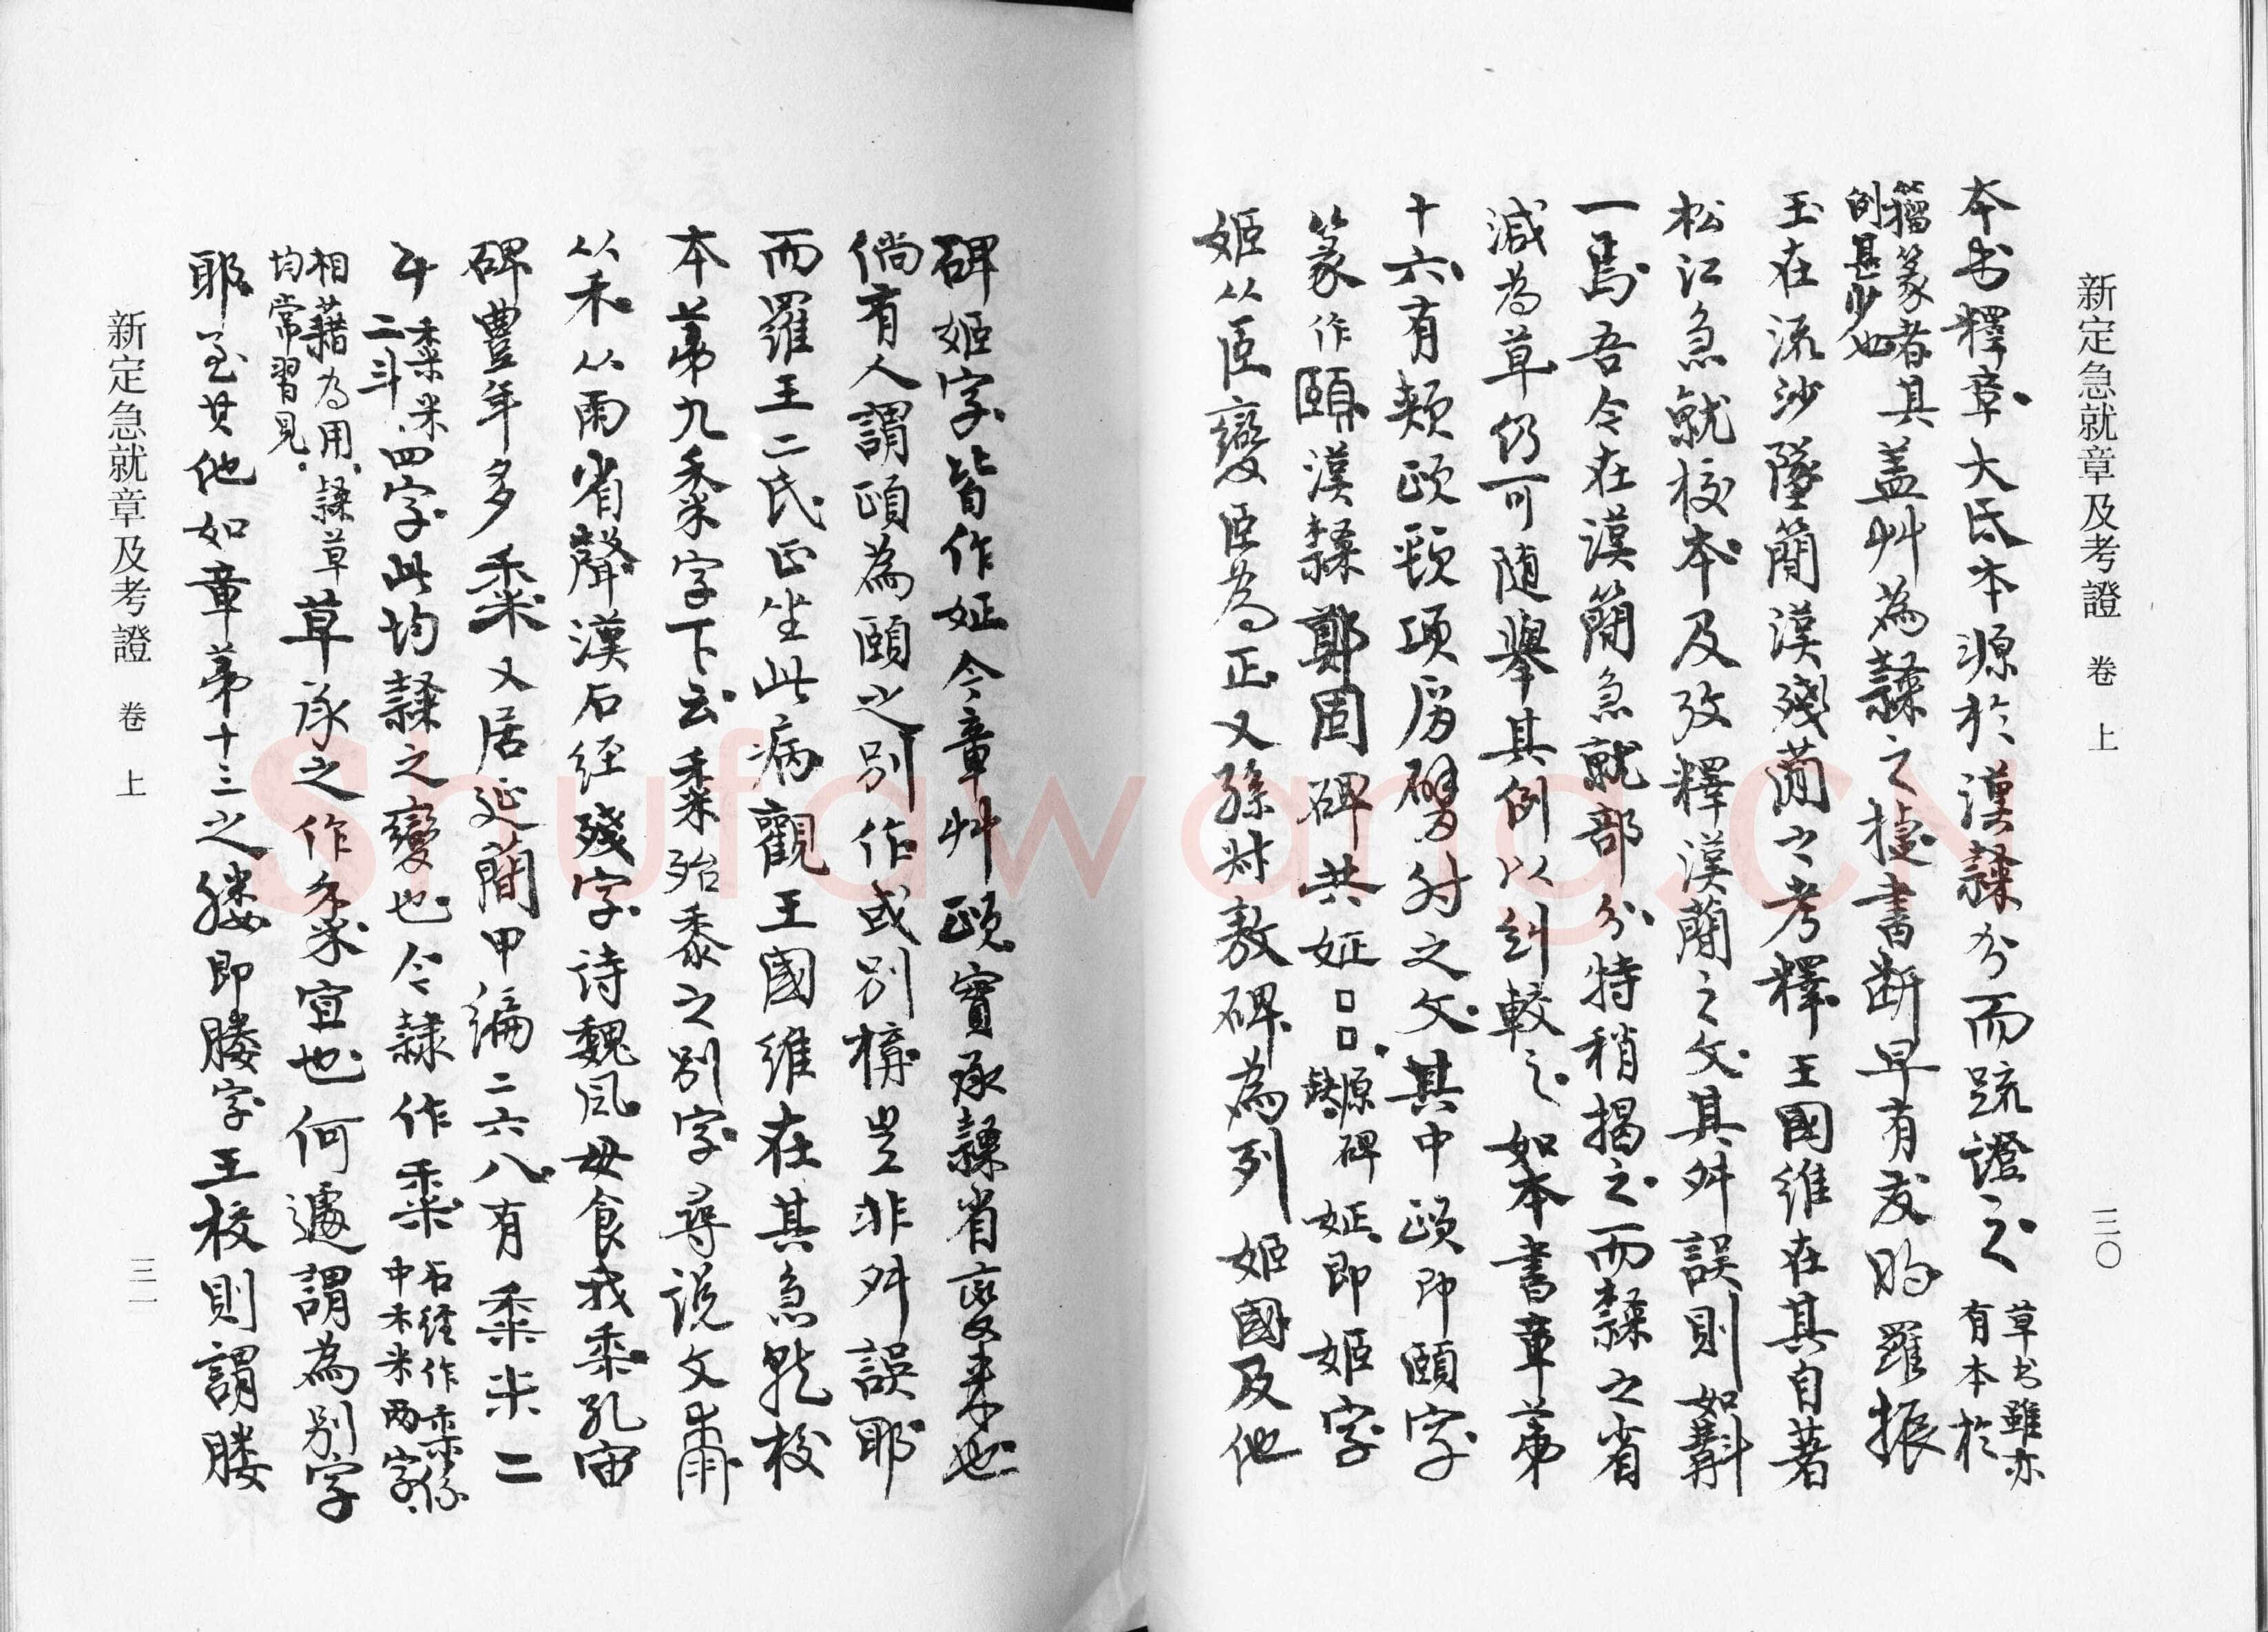 新定急就章及考證 卷上 三〇
本书釋章大氐本源於漢隸分而疏證之草书雖亦有本於
籀篆者其例甚少也蓋艸為隸之捷書斷早有友的羅振
玉在流沙墜簡漢殘蕳之考釋王國維在其自著
松江急就校本及攷釋漢蕳之文其舛誤則如斠
一馬吾令在漢蕳急就部分特稍揭之而隸之省
減為草仍可随舉其例以糾較之如本書章第
十六有頰頤頸項肩臂肘之文其中頤即頤字
篆作頤漢隸鄭固碑共姃□□隸源碑姃即姬字
姬从𦣞變𦣞為正又孫叔敖碑為列姬國及他
碑姬字皆作姃今章艸頤實承隸省变来也
倘有人謂頤為頤之别作或别構豈非舛誤耶
而羅王二氏正坐此病觀王國維在其急就校
本第九黍字下云黍殆黍之别字尋説文黍
从禾从雨省聲漢石经殘字詩魏风毋食我黍孔宙
碑豐年多黍又居延蕳甲编二六八有黍米二
斗黍米二斗四字此均隸之變也今隸作黍石经作黍係中禾米两字
相藉為用隸草均常習見草承之作黍宜也何遽謂為别字
耶至其他如章第十三之䐅即䐅字王校則謂䐅
新定急就章及考證 卷上 三一